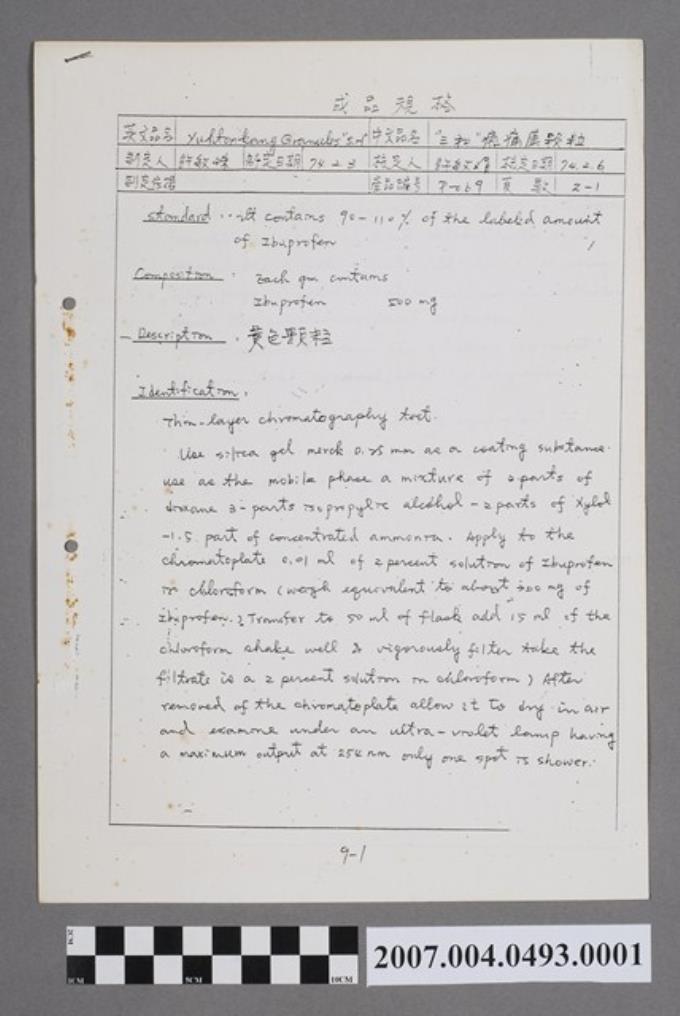 成品規格
英文品名 Yuhtonkang Granules "S.H" 中文品名 "三和" 癒痛康顆粒
制定人 許敏 制定日期 74.2.3 核定人 核定日期 74.2.6
產品編號 P-069 頁數 2-1
Standard : It contains 90-110% of the labeled amount
of Ibuprofen
Composition : Each gm contains
Ibuprofen 500 mg
Description : 黃色顆粒
Identification :
Thin-layer chromatography test.
Use silica gel merck 0.25 mm as a coating substance.
use as the mobile phase a mixture of 2 parts of
dioxane 3-parts isopropylic alcohol - 2 parts of Xylol
-1.5 part of concentrated ammonia. Apply to the
chromatoplate 0.01 ml of 2 percent solution of Ibuprofen
in chloroform (weigh equivalent to about 300 mg of
Ibuprofen. Transfer to 50 ml of flask add 15 ml of the
chloroform shake well & vigorously filter take the
filtrate is a 2 percent solution in chloroform) After
removed of the chromatoplate allow it to dry in air
and examine under an ultra-violet lamp having
a maximum output at 254 nm only one spot is shower.
9-1
2CM
1CM 5CM 10CM
2007.004.0493.0001